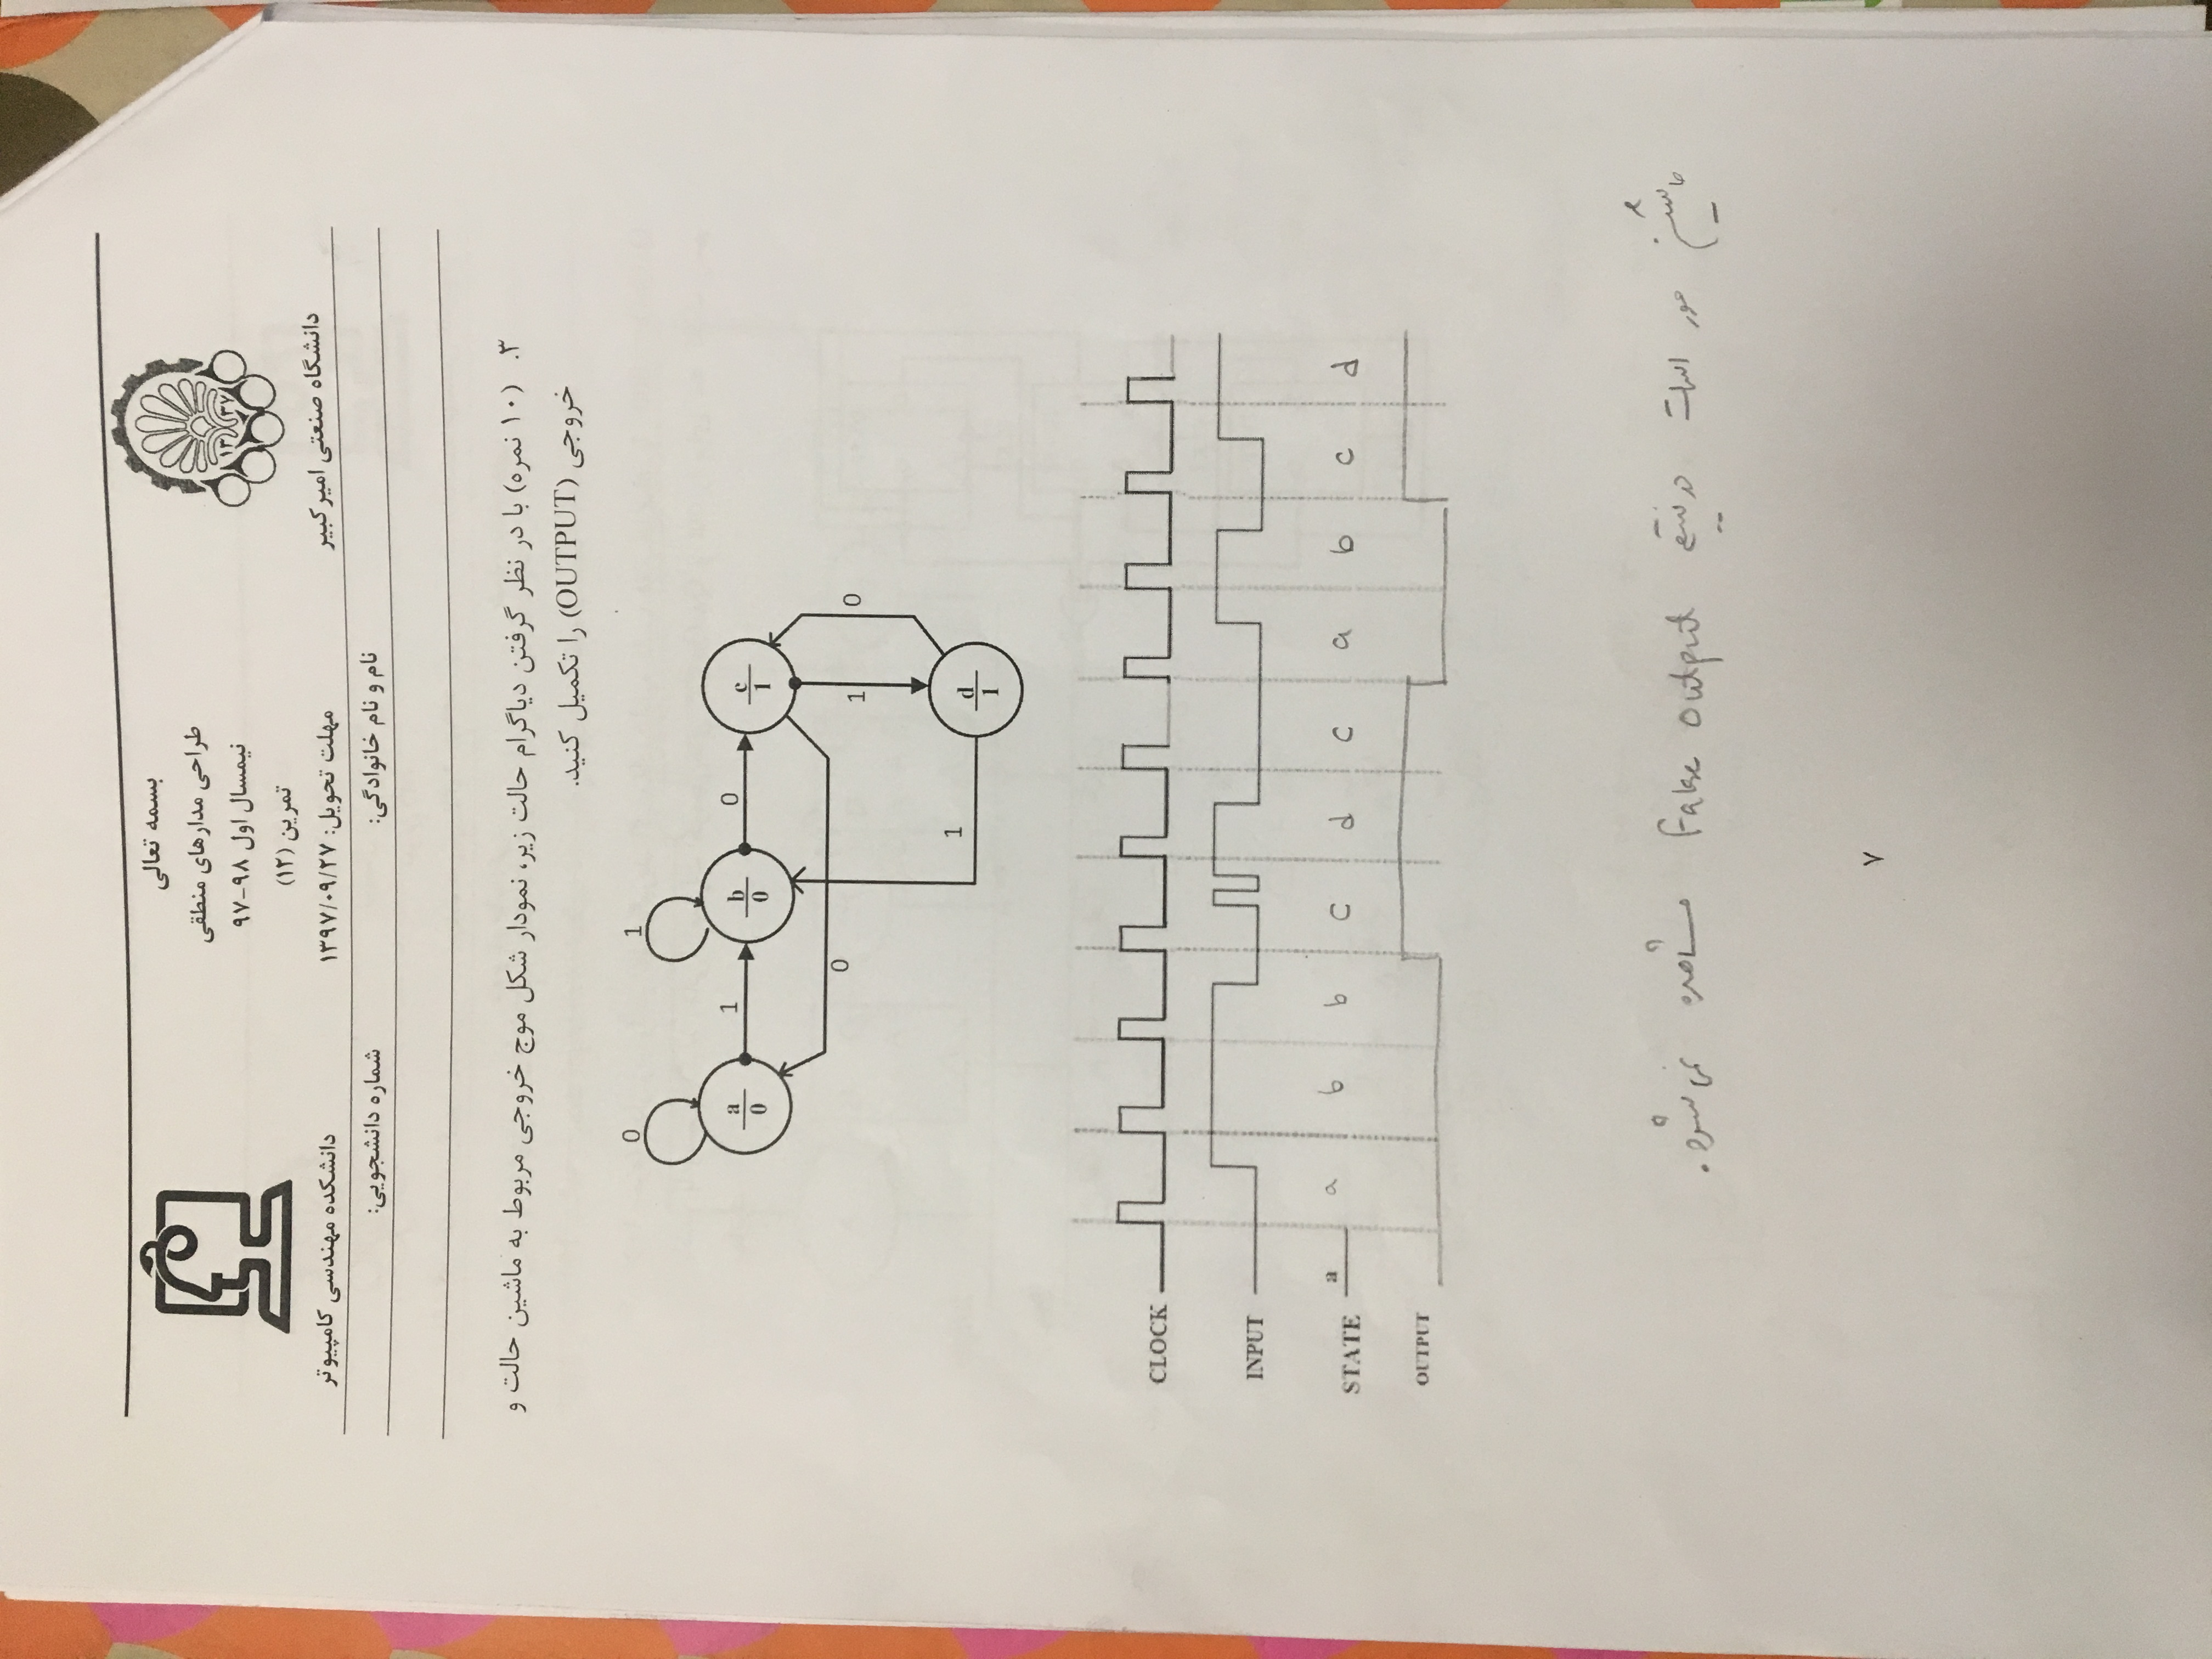 بسمه تعالی
طراحی مدارهای منطقی
نیمسال اول ۹۸-۹۷
تمرین (۱۲)
مهلت تحویل: ۱۳۹۷/۰۹/۲۷
۱۳ ۳۷
دانشگاه صنعتی امیرکبیر
دانشکده مهندسی کامپیوتر
نام و نام خانوادگی: شماره دانشجویی:
۳. (۱۰ نمره) با در نظر گرفتن دیاگرام حالت زیر، نمودار شکل موج خروجی مربوط به ماشین حالت و
خروجی (OUTPUT) را تکمیل کنید.
0 1
a 1 b 0 c
0 0 1
0 1 0
1 d
1
CLOCK
INPUT
STATE a a b b c d c a b c d
OUTPUT
ماشین مور است در نتیجه False output مشاهده نمی شود.
۷